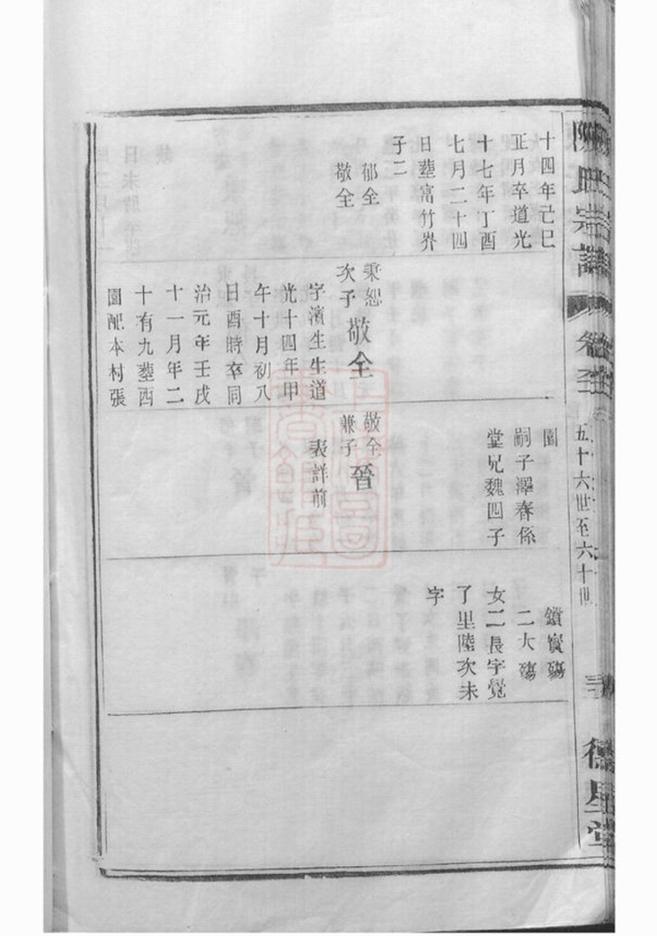 陳氏宗譜
五十六世至六十世
德星堂
十四年己巳
正月卒道光
十七年丁酉
七月二十四
日塟富竹界
子二
郁全
敬全
秉恕
次子
敬全
字濱生生道
光十四年甲
午十月初八
日酉時卒同
治元年壬戌
十一月年二
十有九塟西
園配本村張
園
嗣子澤春係
堂兄魏四子
敬全
兼子
晉
表詳前
鎖實殤
二大殤
女二長字覺
了里陸次未
字